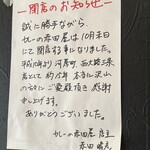 ー閉店のお知らせー
誠に勝手ながら、
カレーの赤田屋は10月末日
にて閉店する事になりました。
平成17年より河原町、西大路三条
店として約12年 本当に沢山
の方々にご愛顧頂き感謝
申し上げます。
ありがとうございました。
カレーの赤田屋 店主
赤田